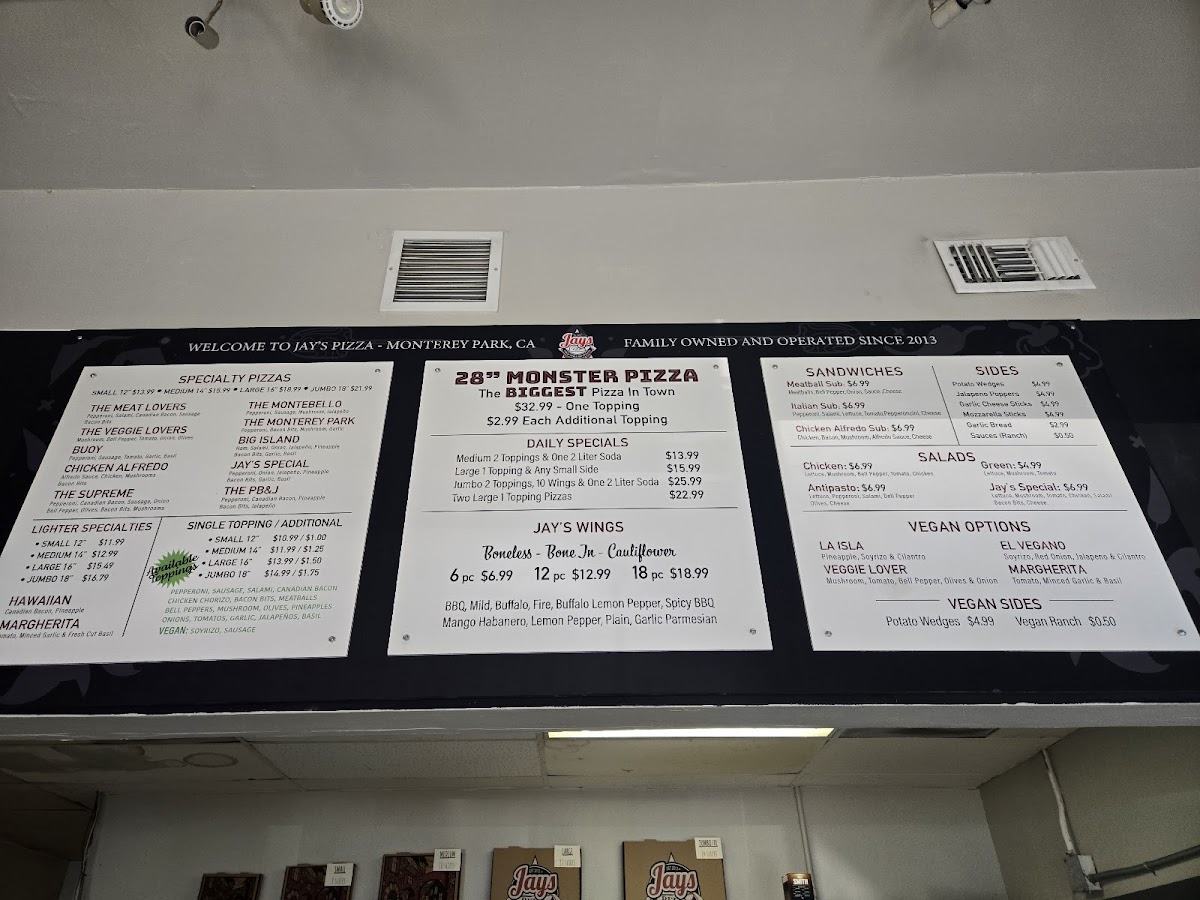 WELCOME TO JAY'S PIZZA - MONTEREY PARK, CA
Jays
FAMILY OWNED AND OPERATED SINCE 2013
SPECIALTY PIZZAS
SMALL 12" $13.99 • MEDIUM 14" $15.99 • LARGE 16" $18.99 • JUMBO 18" $21.99
THE MEAT LOVERS
Pepperoni, Salami, Canadian Bacon, Sausage
Bacon Bits
THE VEGGIE LOVERS
Mushroom, Bell Pepper, Tomato, Onion, Olives
BUOY
Pepperoni, Sausage, Tomato, Garlic, Basil
CHICKEN ALFREDO
Alfredo Sauce, Chicken, Mushrooms
Bacon Bits
THE SUPREME
Pepperoni, Canadian Bacon, Sausage, Onion
Bell Pepper, Olives, Bacon Bits, Mushrooms
THE MONTEBELLO
Pepperoni, Sausage, Mushroom, Jalapeño
THE MONTEREY PARK
Pepperoni, Bacon Bits, Mushroom, Garlic
BIG ISLAND
Ham, Salami, Onion, Jalapeño, Pineapple
Bacon Bits, Garlic, Basil
JAY'S SPECIAL
Pepperoni, Onion, Jalapeño, Pineapple
Bacon Bits, Garlic, Basil
THE PB&J
Pepperoni, Canadian Bacon, Pineapple
Bacon Bits, Jalapeño
LIGHTER SPECIALTIES
• SMALL 12" $11.99
• MEDIUM 14" $12.99
• LARGE 16" $15.49
• JUMBO 18" $16.79
HAWAIIAN
Canadian Bacon, Pineapple
MARGHERITA
Tomato, Minced Garlic & Fresh Cut Basil
SINGLE TOPPING / ADDITIONAL
• SMALL 12" $10.99 / $1.00
• MEDIUM 14" $11.99 / $1.25
• LARGE 16" $13.99 / $1.50
• JUMBO 18" $14.99 / $1.75
Available
Toppings
PEPPERONI, SAUSAGE, SALAMI, CANADIAN BACON
CHICKEN CHORIZO, BACON BITS, MEATBALLS
BELL PEPPERS, MUSHROOM, OLIVES, PINEAPPLES
ONIONS, TOMATOS, GARLIC, JALAPEÑOS, BASIL
VEGAN: SOYRIZO, SAUSAGE
28" MONSTER PIZZA
The BIGGEST Pizza In Town
$32.99 - One Topping
$2.99 Each Additional Topping
DAILY SPECIALS
Medium 2 Toppings & One 2 Liter Soda $13.99
Large 1 Topping & Any Small Side $15.99
Jumbo 2 Toppings, 10 Wings & One 2 Liter Soda $25.99
Two Large 1 Topping Pizzas $22.99
JAY'S WINGS
Boneless - Bone In - Cauliflower
6 pc $6.99 12 pc $12.99 18 pc $18.99
BBQ, Mild, Buffalo, Fire, Buffalo Lemon Pepper, Spicy BBQ
Mango Habanero, Lemon Pepper, Plain, Garlic Parmesian
SANDWICHES
Meatball Sub: $6.99
Meatballs, Bell Pepper, Onion, Sauce ,Cheese
Italian Sub: $6.99
Pepperoni, Salami, Lettuce, Tomato, Pepperoncini, Cheese
Chicken Alfredo Sub: $6.99
Chicken, Bacon, Mushroom, Alfredo Sauce, Cheese
SIDES
Potato Wedges $4.99
Jalapeno Poppers $4.99
Garlic Cheese Sticks $4.99
Mozzarella Sticks $4.99
Garlic Bread $2.99
Sauces (Ranch) $0.50
SALADS
Chicken: $6.99
Lettuce, Mushroom, Bell Pepper, Tomato, Chicken
Green: $4.99
Lettuce, Mushroom, Tomato
Antipasto: $6.99
Lettuce, Pepperoni, Salami, Bell Pepper
Olives, Cheese
Jay's Special: $6.99
Lettuce, Mushroom, Tomato, Chicken, Salami
Bacon Bits, Cheese
VEGAN OPTIONS
LA ISLA
Pineapple, Soyrizo & Cilantro
EL VEGANO
Soyrizo, Red Onion, Jalapeno & Cilantro
VEGGIE LOVER
Mushroom, Tomato, Bell Pepper, Olives & Onion
MARGHERITA
Tomato, Minced Garlic & Basil
VEGAN SIDES
Potato Wedges $4.99 Vegan Ranch $0.50
SMALL
MEDIUM
LARGE
Jays
Jays